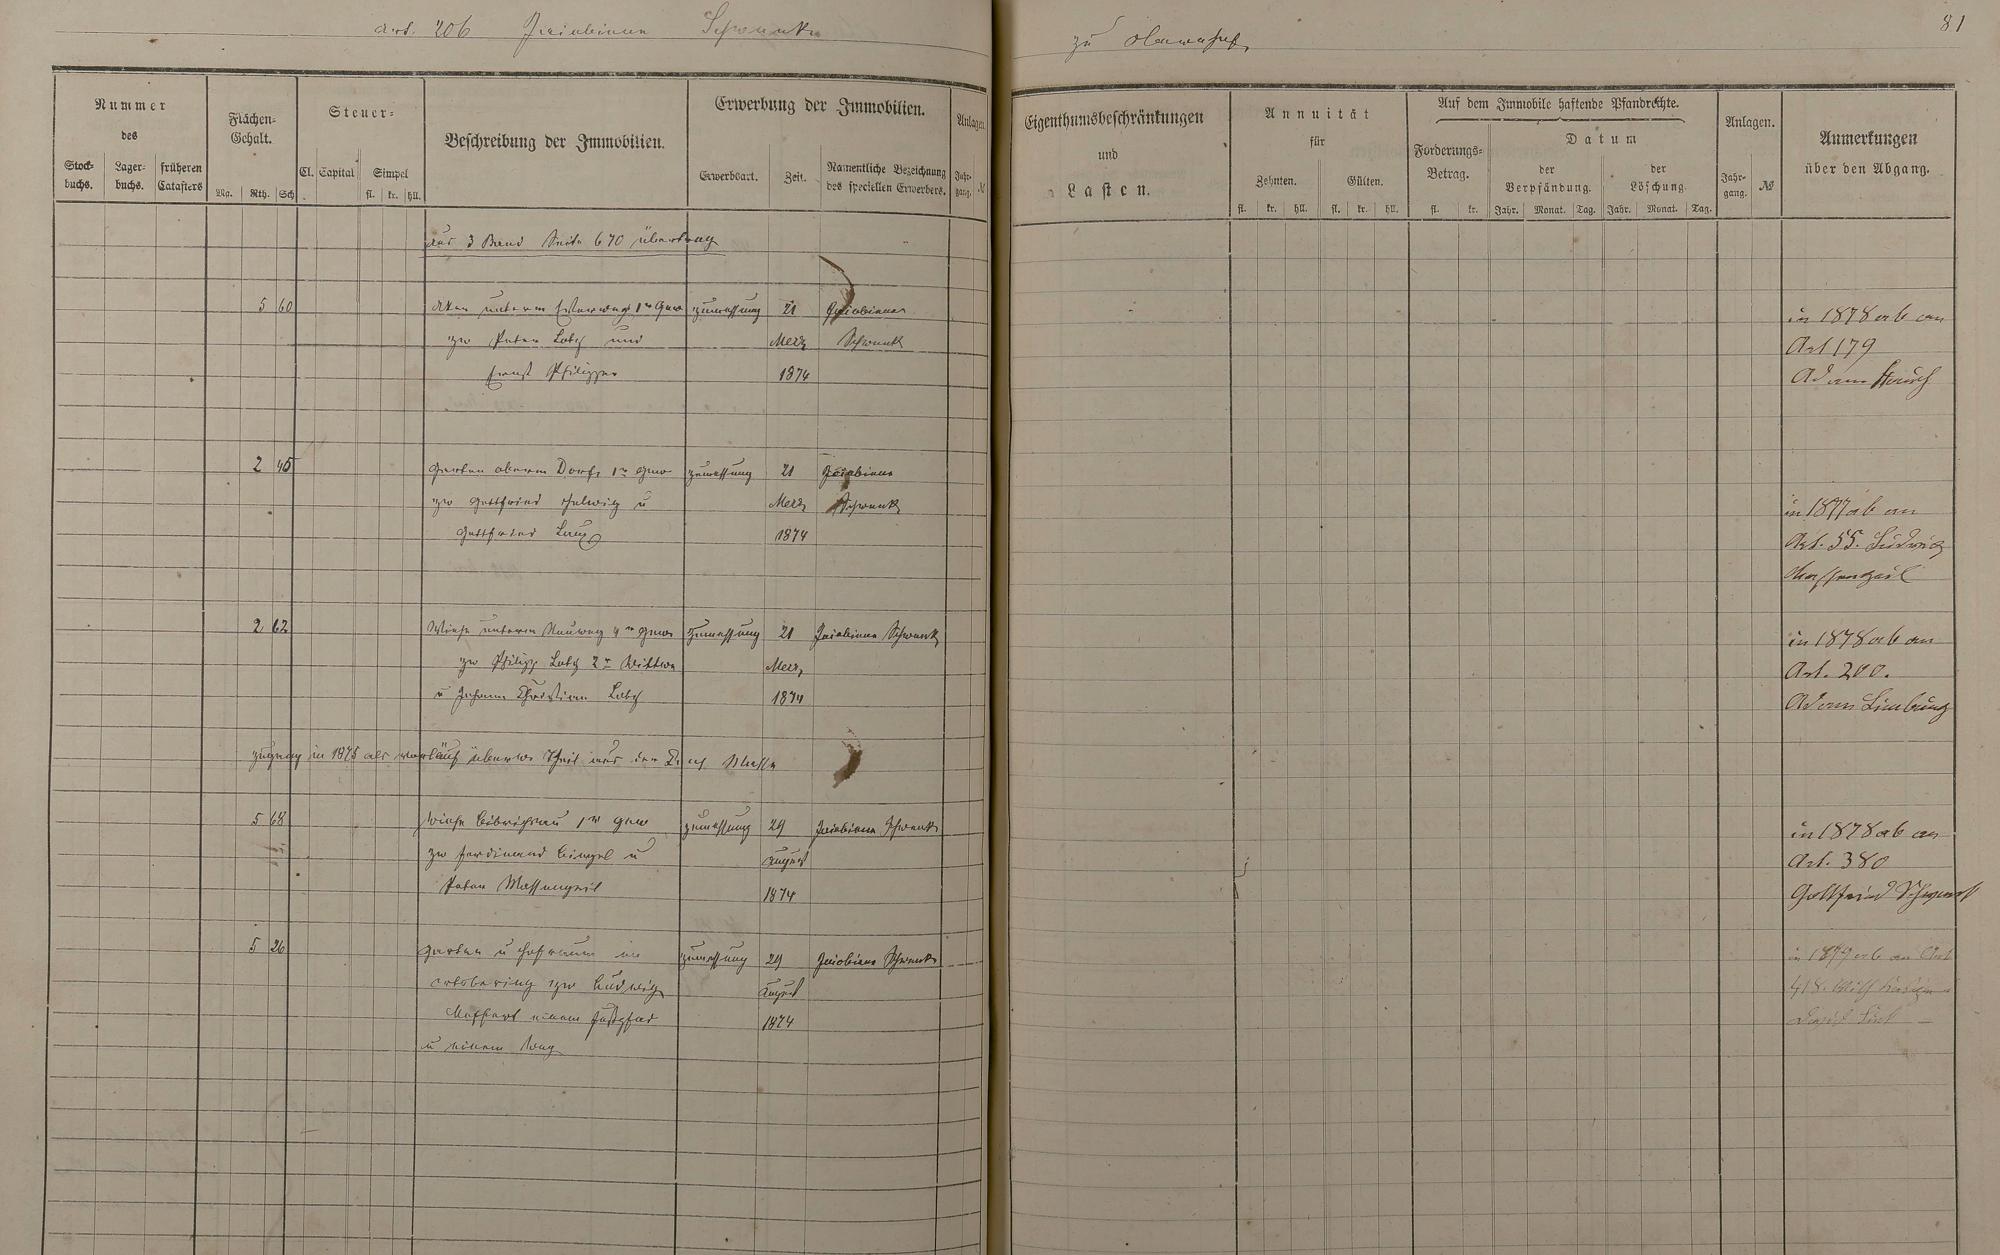 Art. 206 Jacobine Schwenk
zu
81
Nummer
des
Stock-
buchs.
Lager-
buchs.
früheren
Catasters
Flächen-
Gehalt.
Mg. Rth. Sch
Steuer-
Cl. Capital
Simpel
fl. kr. hll.
Beschreibung der Immobilien.
Erwerbung der Immobilien.
Erwerbsart.
Zeit.
Namentliche Bezeichnung
des speciellen Erwerbers.
Anlagen.
Jahr-
gang.
№
Eigenthumsbeschränkungen
und
Lasten.
Annuität
für
Zehnten.
Gülten.
fl. kr. hll. fl. kr. hll.
Auf dem Immobile haftende Pfandrechte.
Forderungs-
Betrag.
fl. kr.
Datum
der
Verpfändung.
der
Löschung.
Jahr. Monat. Tag. Jahr. Monat. Tag.
Anlagen.
Jahr-
gang.
№
Anmerkungen
über den Abgang.
aus 3 Band Seite 670 übertrag
5 60 Aker unterm 1r Gew Zumessung 21 Jacobine
zw Peter Lotz und Merz Schwenk
Ernst Philipper 1874
in 1878 ab an
Art 179
Adam
2 45 Garten oberm Dorf 1r Gew Zumessung 21 Jacobine
zw Gottfried Helwig u Merz Schwenk
Gottfried Laux 1874
in 1877 ab an
Art. 55. Ludwig
Massengeil
2 62 Wiese unterm Auweg 4r Gew Zumessung 21 Jacobine Schwenk
zw Philipp Lotz 2r Wittwe Merz
u Johann Christian Lotz 1874
in 1878 ab an
Art. 200.
Adam Limburg
zugang in 1875 als Theil aus der Masse
5 68 Wiese 1r Gew Zumessung 29 Jacobine Schwenk
zw Ferdinand Bingel u August
Peter Massengeil 1874
in 1878 ab an
Art. 380
Gottfried Schwenk
5 26 Garten u Hofraum im Zumessung 29 Jacobine Schwenk
ortsbering zw Ludwig August
Meffert einem Fustpfad 1874
u einem Weg
in 1879 ab an Art
418.